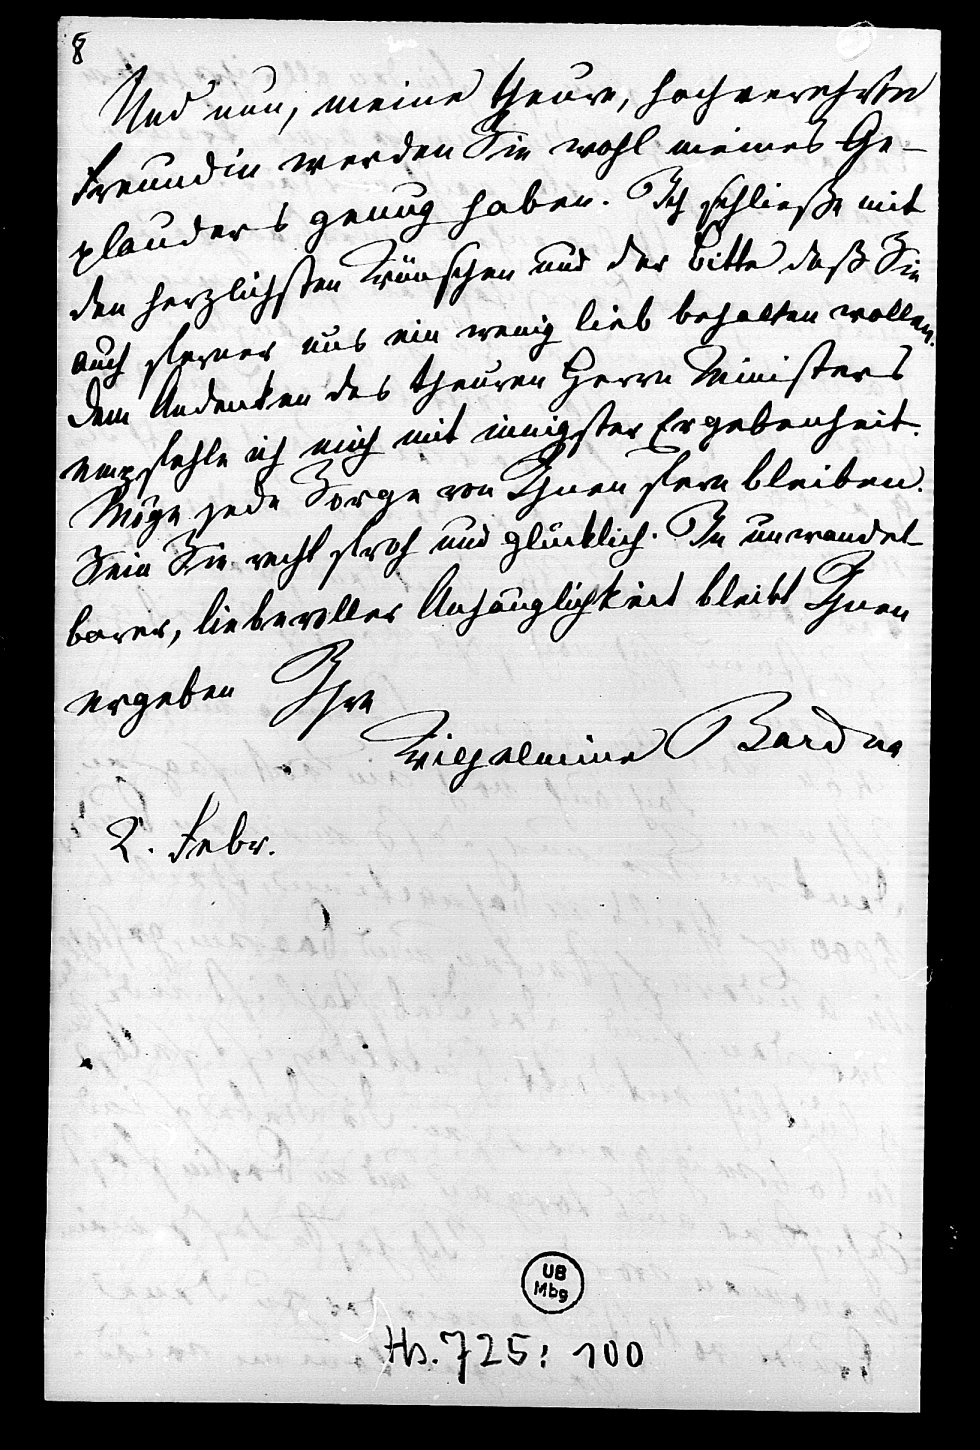 8
Und nun, meine theure, hochverehrte
Freundin werden Sie wohl meines Ge-
plauders genug haben. Ich schließe mit
den herzlichsten Wünschen und der Bitte daß Sie
auch ferner uns ein wenig lieb behalten wollen.
Dem Andenken des theuren Herrn Ministers
empfehle ich mich mit innigster Ergebenheit.
Möge jede Sorge von Ihnen fern bleiben.
Sein Sie recht froh und glücklich. In unwandel-
barer, liebevoller Anhänglichkeit bleibt Ihnen
ergeben Ihre
Wilhelmine Bardua
2. Febr.
UB
Mbg
Hs. 725: 100